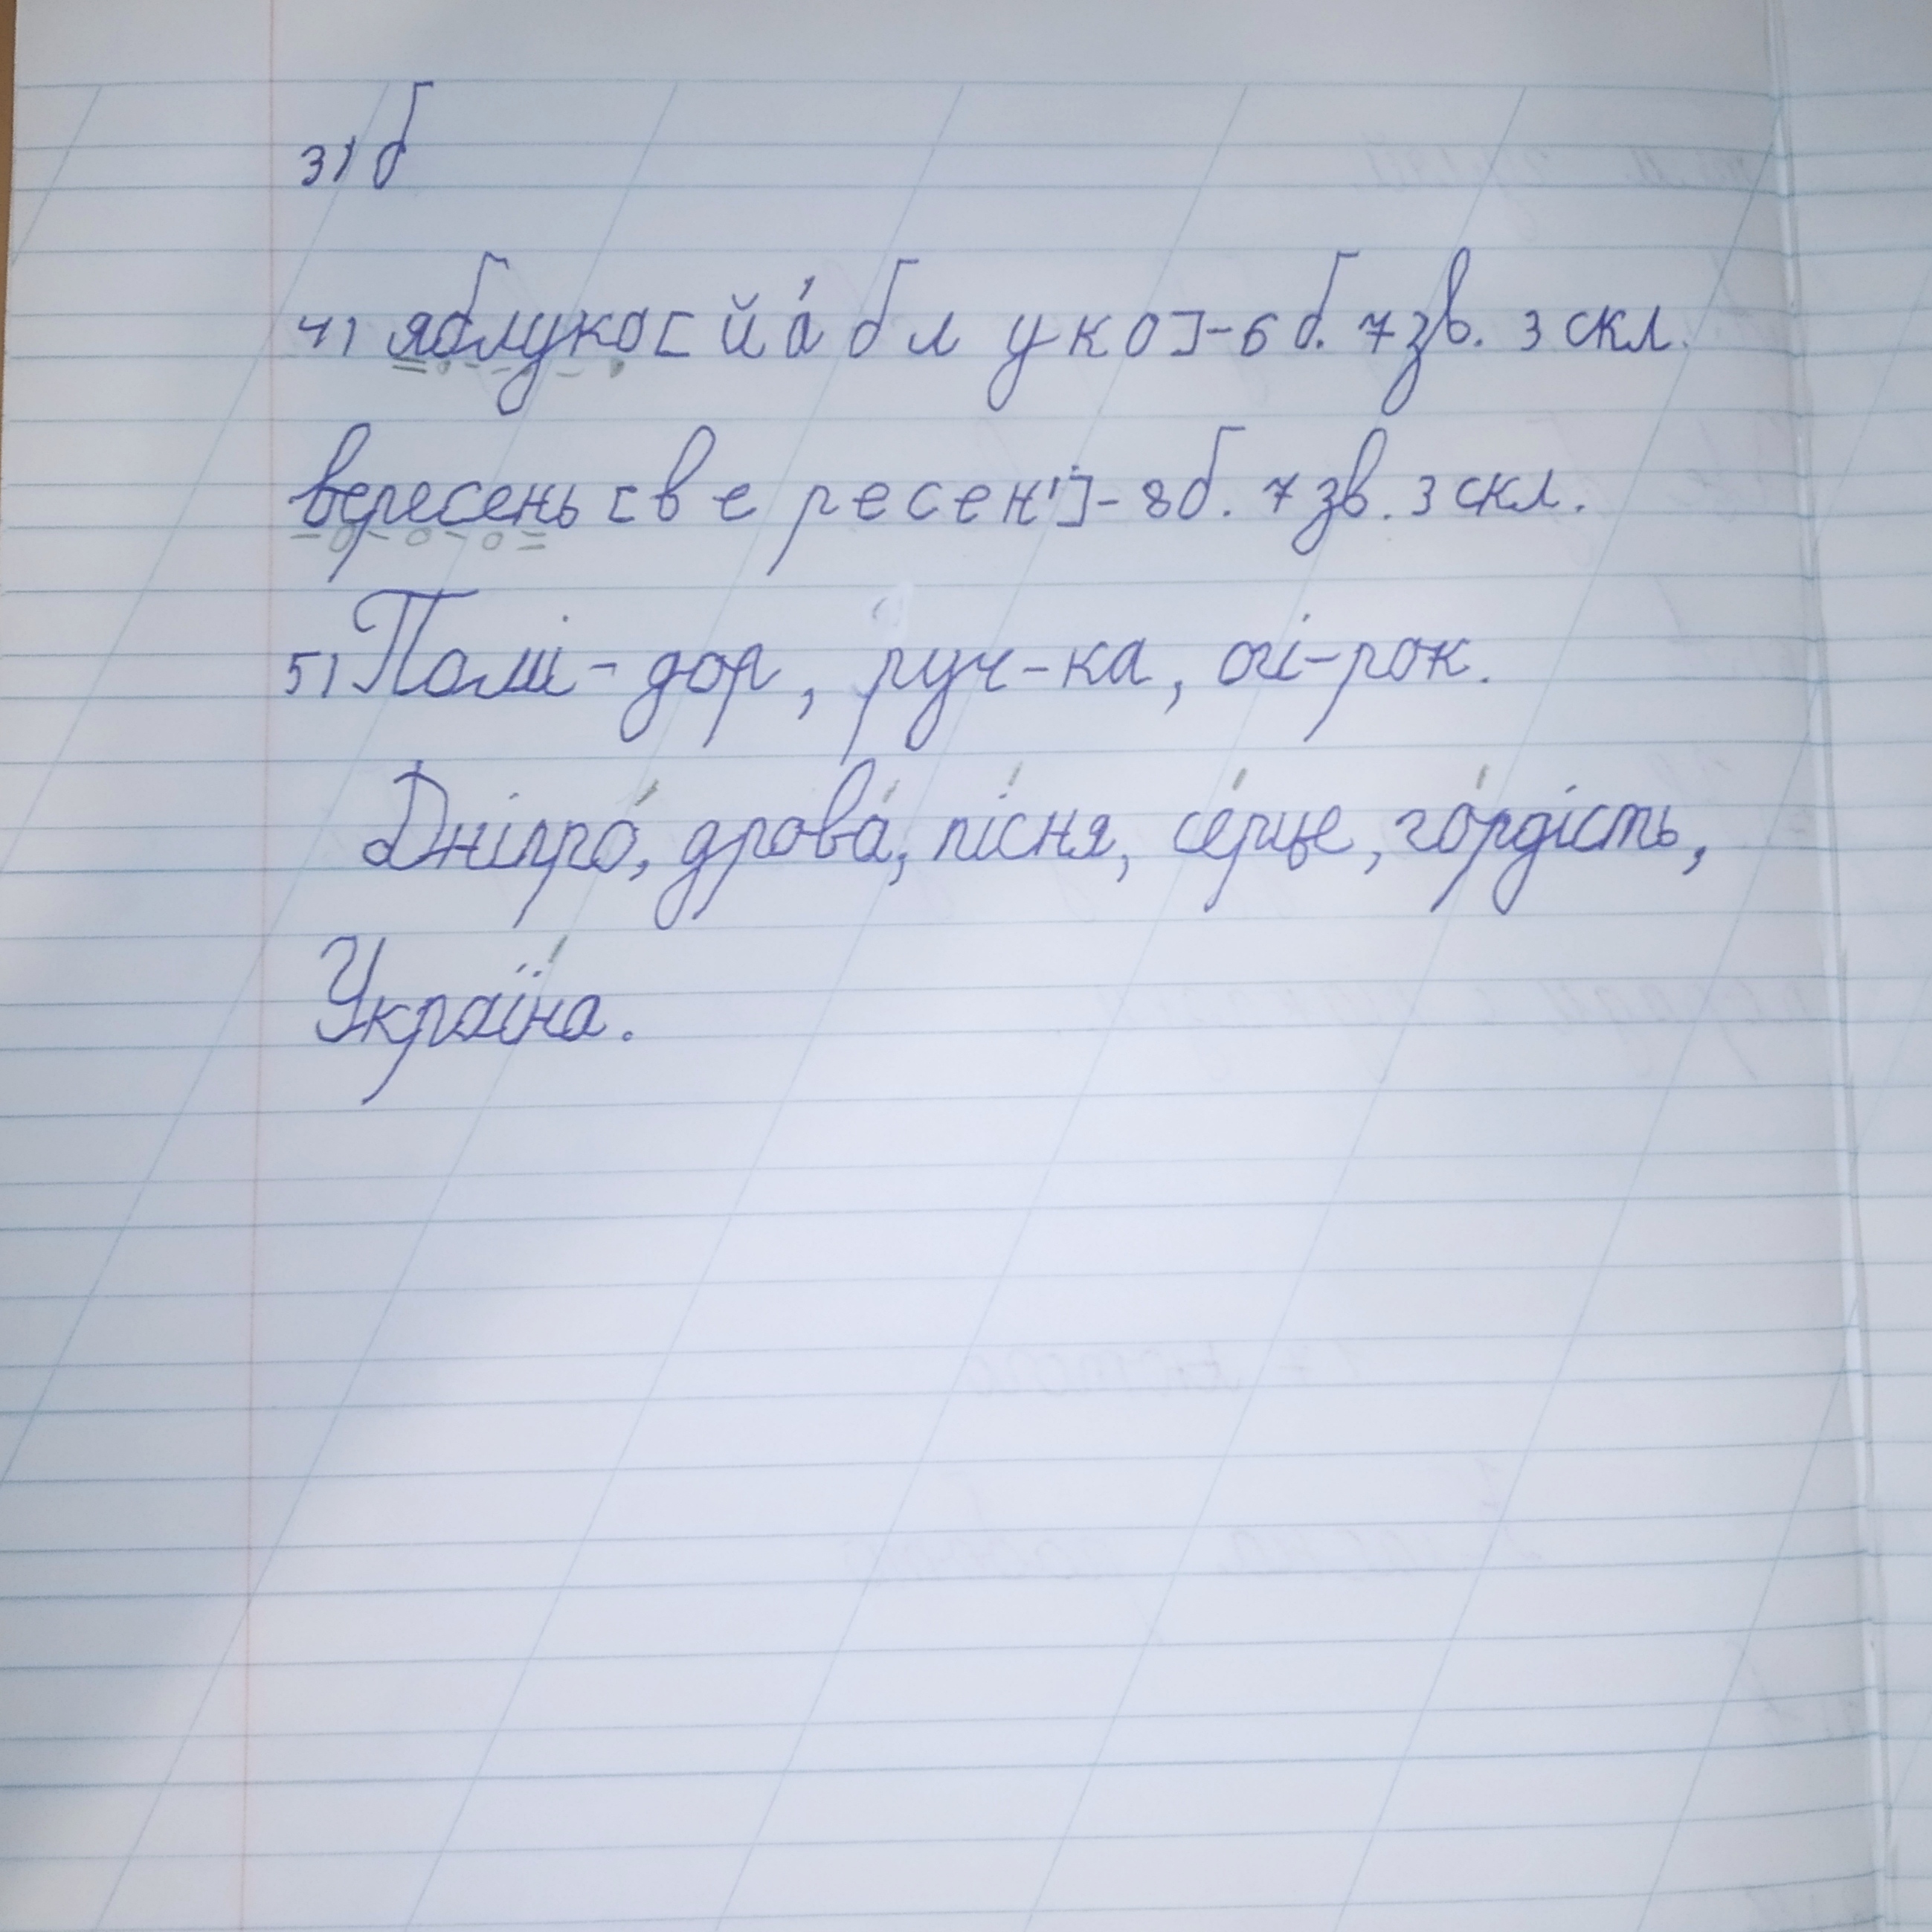 3) б
4) яблуко[ й а́ б л у к о]-6 б. 7 зв. 3 скл.
вересень [в е р е с е н']-8 б. 7 зв. 3 скл.
5) Помі-дор, руч-ка, огі-рок.
Дніпро́, дрова́, пі́сня, се́рце, го́рдість,
Украї́на.